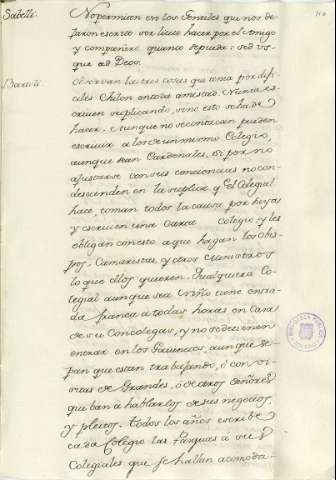 Sabelli.
No permiten en los Gentiles que nos de-
jaron escrito ser licito hacer por el Amigo
y compañero quanto se pueda: sed us-
que ad Deos.
Observan las tres cosas que tenia por difi-
ciles Chilon en toda amistad. Nunca es-
criven suplicando, sino esto se ha de
hacer. Aunque no se conozcan pueden
escrivir a los de un mismo Colegio,
aunque sean Cardenales. Si por no
ajustarse con sus conciencias no con-
descienden en la suplica y el Colegial
hace, toman todos la causa por hoya
y escriven una Carta Colegio, y les
obligan con esto a que hagan los Obis-
pos, Camaristas, y otros Ministros
lo que ellos quieren. Qualquiera Co-
legial aunque sea Niño tiene entra-
da franca a todas horas en Casa
de su Concolegas, y no se detienen
entrar en los Gavinetes, aunque se-
pan que estan trabajando, ó con vi-
sitas de Grandes, ó de otros Señores
que van á hablarles de sus negocios,
y pleitos. Todos los años escribe
cada Colegio las Pasquas a sus
Colegiales que se hallan acomoda-